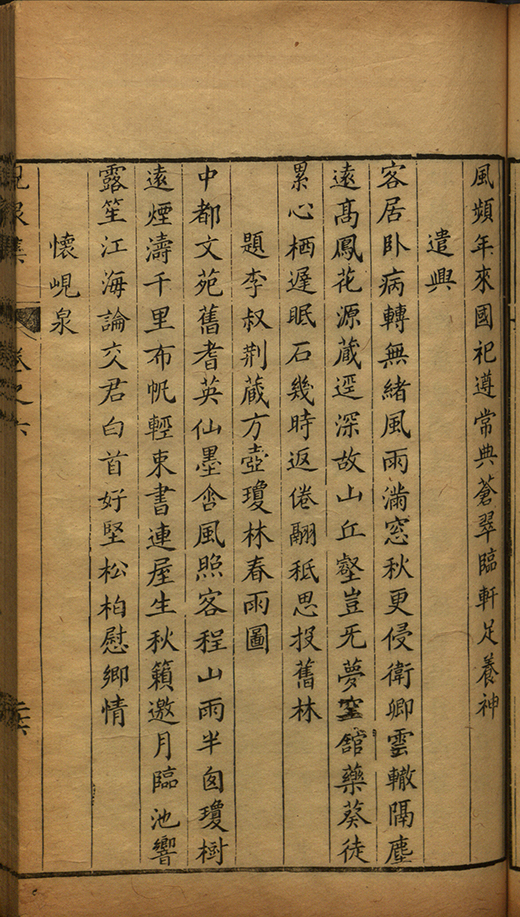 風頻年來國祀遵常典蒼翠臨軒足養神
遣興
客居卧病轉無緒風雨滿窓秋更侵衛卿雲轍隔塵
遠高鳳花源蔵逕深故山丘壑豈旡夢空舘藥葵徒
累心栖遲眠石幾時返倦翮秪思投舊林
題李叔荆蔵方壺瓊林春雨圖
中都文苑舊耆英仙墨含風照客程山雨半囱瓊樹
遠煙濤千里布帆輕束書連屋生秋籟邀月臨池響
露笙江海論交君白首好堅松柏慰卿情
懷峴泉
峴泉集
卷之六